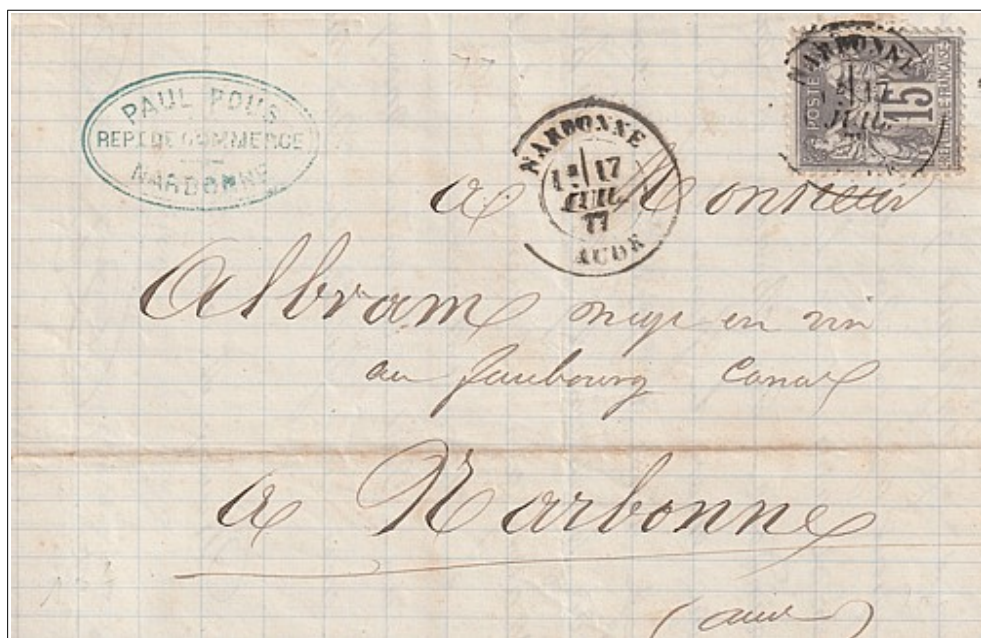 PAUL POUS
REPT DE COMMERCE
NARBONNE
NARBONNE
1E 17
JUIL
77
AUDE
NARBONNE
17
JUIL
POSTES
15
REPUBLIQUE FRANÇAISE
a Monsieur
Albram negt en vin
au faubourg Canal
a Narbonne
(aude)